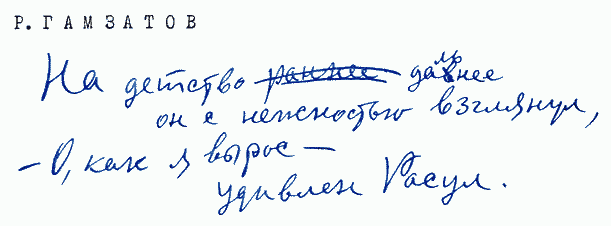 Р. ГАМЗАТОВ
На детство раннее дальнее
он с нежностью взглянул,
– О, как я вырос –
удивлен Расул.